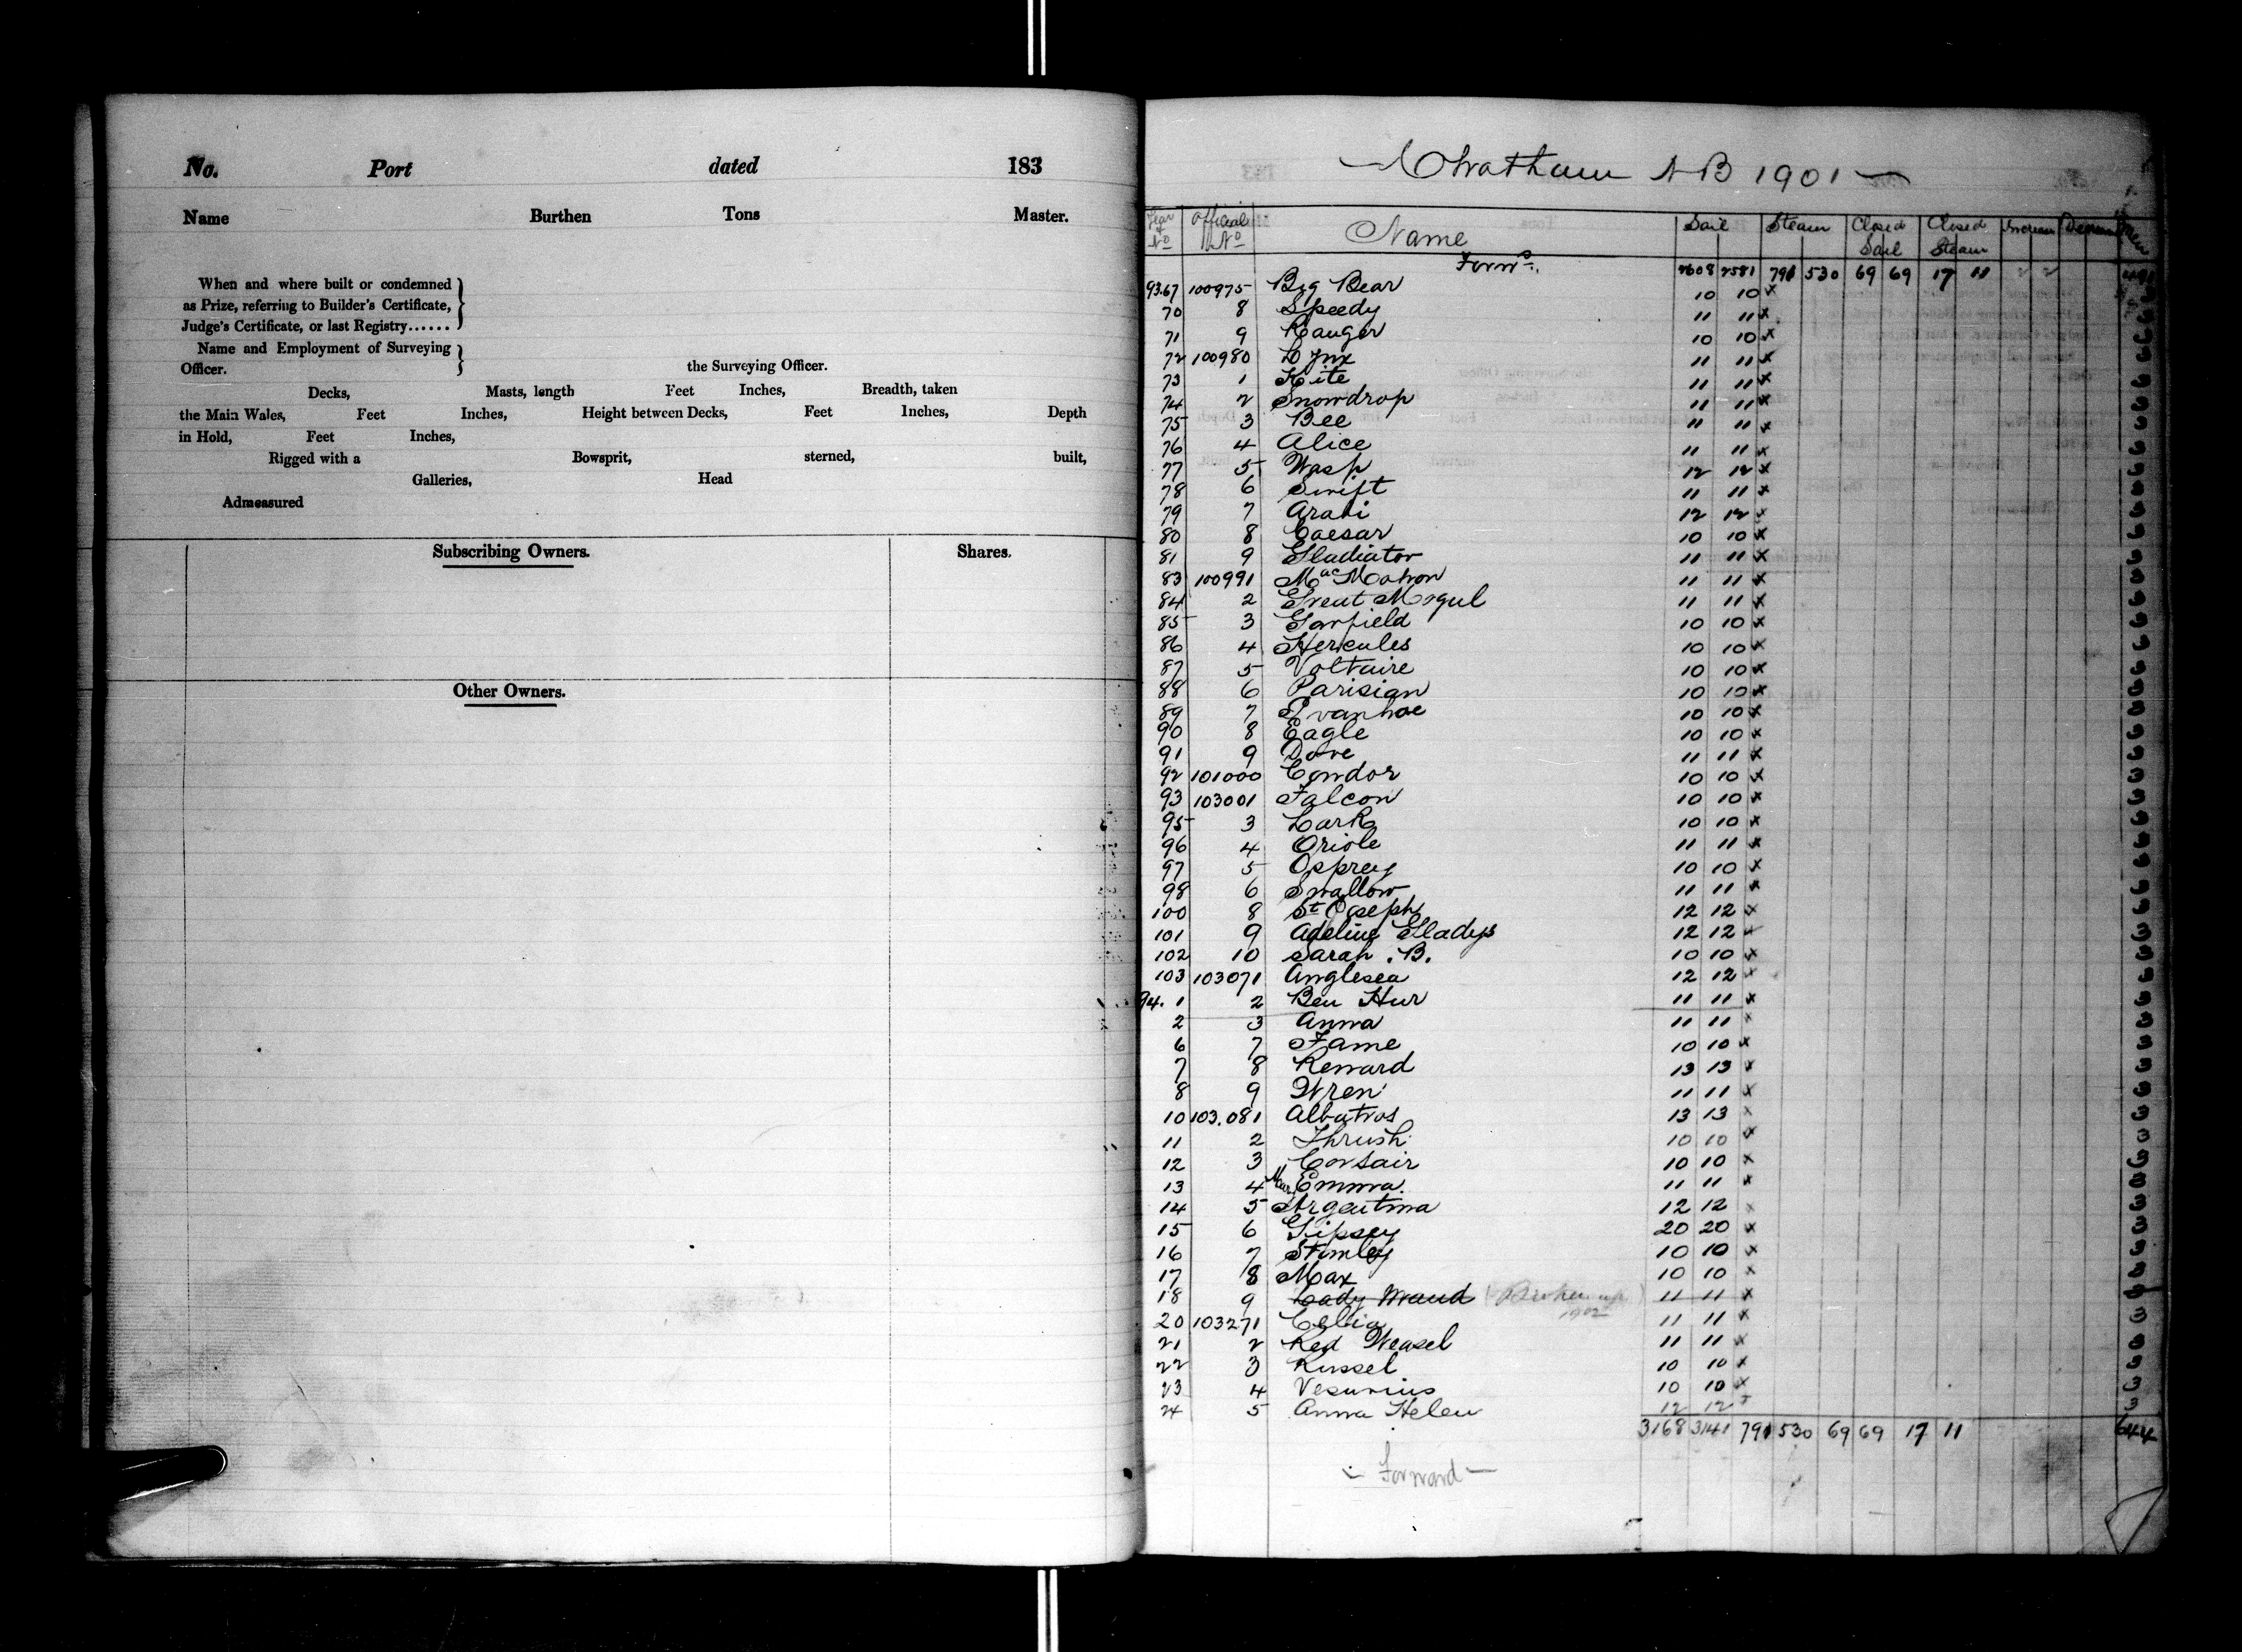 No. Port dated 183
Name Burthen Tons Master.
When and where built or condemned
as Prize, referring to Builder's Certificate,
Judge's Certificate, or last Registry......
Name and Employment of Surveying
Officer. the Surveying Officer.
Decks, Masts, length Feet Inches, Breadth, taken
the Main Wales, Feet Inches, Height between Decks, Feet Inches, Depth
in Hold, Feet Inches,
Rigged with a Bowsprit, sterned, built,
Galleries, Head
Admeasured
Subscribing Owners. Shares.
Other Owners.
Chatham NB 1901
Year & No Official No Name Sail Steam Closed Sail Closed Steam Increase Men
Forwd. 2608 2581 791 530 69 69 17 11 2 2 491
93.67 100975 Big Bear 10 10 x 3
70 8 Speedy 11 11 x 3
71 9 Ranger 10 10 x 3
72 100980 Lynx 11 11 x 3
73 1 Kite 11 11 x 3
74 2 Snowdrop 11 11 x 3
75 3 Bee 11 11 x 3
76 4 Alice 11 11 x 3
77 5 Wasp 12 12 x 3
78 6 Swift 11 11 x 3
79 7 Arabi 12 12 x 3
80 8 Caesar 10 10 x 3
81 9 Gladiator 11 11 x 3
83 100991 MacMahon 11 11 x 3
84 2 Great Mogul 11 11 x 3
85 3 Garfield 10 10 x 3
86 4 Hercules 10 10 x 3
87 5 Voltaire 10 10 x 3
88 6 Parisian 10 10 x 3
89 7 Ivanhoe 10 10 x 3
90 8 Eagle 10 10 x 3
91 9 Dove 11 11 x 3
92 101000 Condor 10 10 x 3
93 103001 Falcon 10 10 x 3
95 3 Lark 10 10 x 3
96 4 Oriole 11 11 x 3
97 5 Osprey 10 10 x 3
98 6 Swallow 11 11 x 3
100 8 St Joseph 12 12 x 3
101 9 Adeline Gladys 12 12 x 3
102 10 Sarah . B. 10 10 x 3
103 103071 Anglesea 12 12 x 3
94. 1 2 Ben Hur 11 11 x 3
2 3 Anna 11 11 x 3
6 7 Fame 10 10 x 3
7 8 Reward 13 13 x 3
8 9 Wren 11 11 x 3
10 103.081 Albatros 13 13 x 3
11 2 Thrush 10 10 x 3
12 3 Corsair 10 10 x 3
13 4 Mary Emma 11 11 x 3
14 5 Argentina 12 12 x 3
15 6 Gipsey 20 20 x 3
16 7 Stanley 10 10 x 3
17 8 Max 10 10 x 3
18 9 Lady Maud (Broken up 1902) 11 11 x
20 103271 Celia 11 11 x 3
21 2 Red Weasel 11 11 x 3
22 3 Russel 10 10 x 3
23 4 Vesuvius 10 10 x 3
24 5 Anna Helen 12 12 x 3
3168 3141 791 530 69 69 17 11 644
Forward